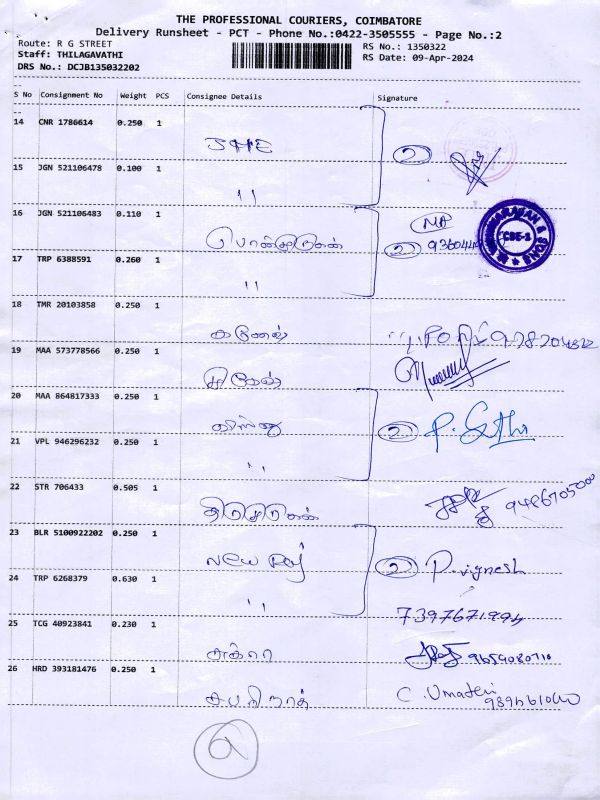 THE PROFESSIONAL COURIERS, COIMBATORE
Delivery Runsheet - PCT - Phone No.:0422-3505555 - Page No.:2
Route: R G STREET
RS No.: 1350322
Staff: THILAGAVATHI
RS Date: 09-Apr-2024
DRS No.: DCJB135032202
S No Consignment No Weight PCS Consignee Details Signature
14 CNR 1786614 0.250 1
2
15 JGN 521106478 0.100 1
"
16 JGN 521106483 0.110 1
2
CBE-1
17 TRP 6388591 0.260 1
"
18 TMR 20103858 0.250 1 கணேஷ்
19 MAA 573778566 0.250 1
20 MAA 864817333 0.250 1
2
21 VPL 946296232 0.250 1
"
22 STR 706433 0.505 1
23 BLR 5100922202 0.250 1 New Raj 2 P. vignesh
24 TRP 6268379 0.630 1
"
25 TCG 40923841 0.230 1
26 HRD 393181476 0.250 1 சபரிநாத் C. Umadevi